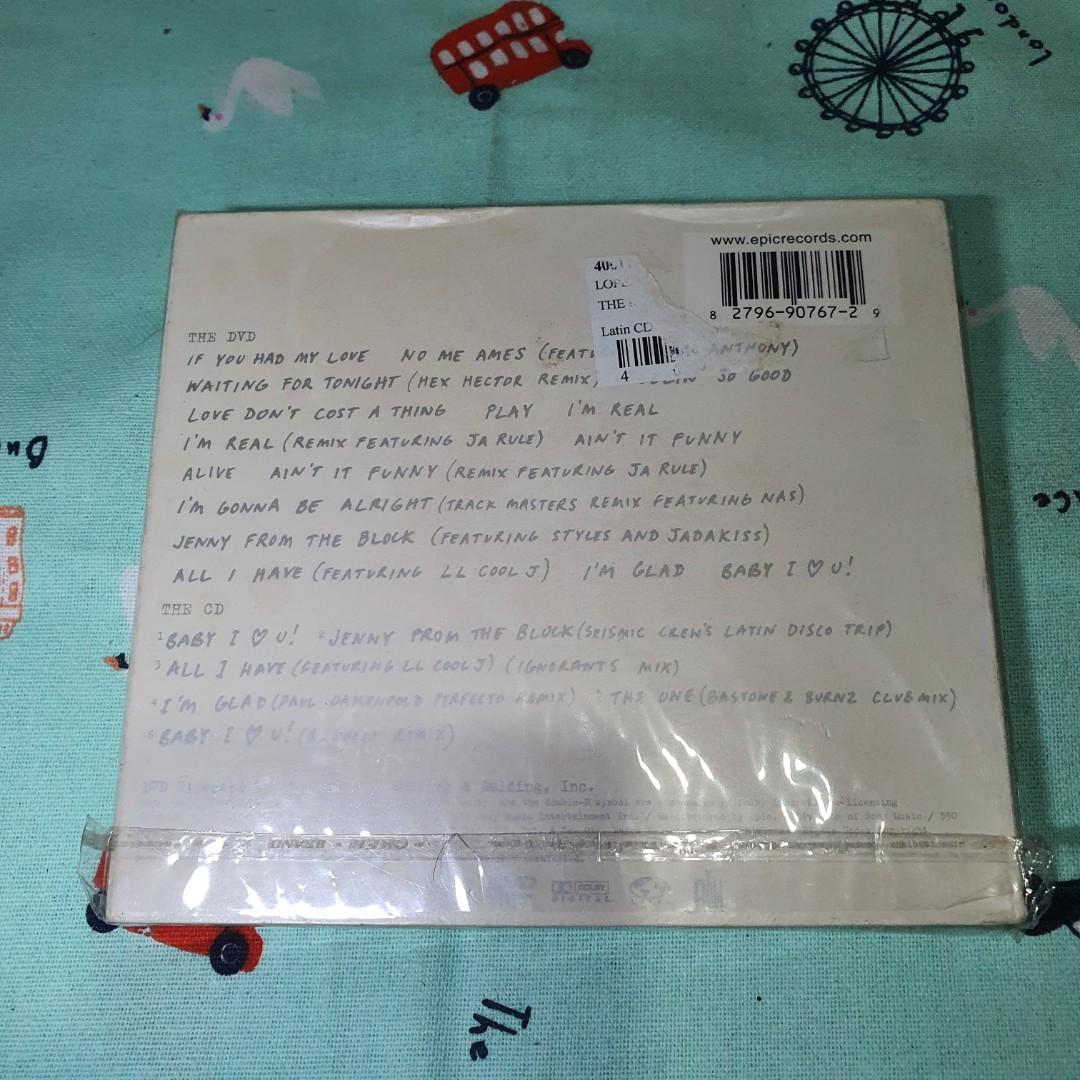 London
www.epicrecords.com
8 2796-90767-2 9
THE
Latin CD
4
THE DVD
IF YOU HAD MY LOVE NO ME AMES ANTHONY)
WAITING FOR TONIGHT (HEX HECTOR REMIX) SO GOOD
LOVE DON'T COST A THING PLAY I'M REAL
I'M REAL (REMIX FEATURING JA RULE) AIN'T IT FUNNY
ALIVE AIN'T IT FUNNY (REMIX FEATURING JA RULE)
I'M GONNA BE ALRIGHT (TRACK MASTERS REMIX FEATURING NAS)
JENNY FROM THE BLOCK (FEATURING STYLES AND JADAKISS)
ALL I HAVE (FEATURING LL COOL J) I'M GLAD BABY I ♡ U!
THE CD
1 BABY I ♡ U! 2 JENNY FROM THE BLOCK (SEISMIC CREW'S LATIN DISCO TRIP)
3 ALL I HAVE (FEATURING LL COOL J) (IGNORANTS MIX)
4 I'M GLAD (PAUL OAKENFOLD PERFECTO REMIX) THE ONE (BASTONE & BURNZ CLUB MIX)
6 BABY I ♡ U! REMIX)
DVD Belding, Inc.
and the double-D symbol are
Music Entertainment Inc. / of Sony Music / 550
BRAND
DOLBY
DIGITAL
The